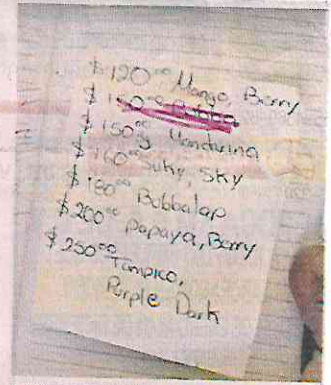 $120.00 Mango, Berry
$150.00
$150.00 Mandarina
$160.00 Suky, Sky
$180.00 Bubbalap
$200.00 Papaya, Berry
$250.00 Tampico,
Purple Dark